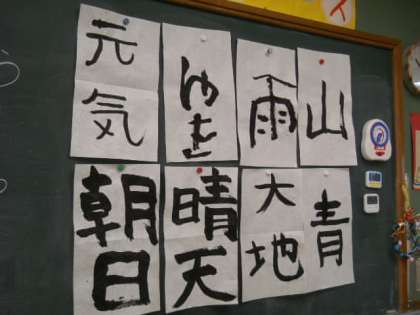 元気
ゆき
雨
山
朝日
晴天
大地
青